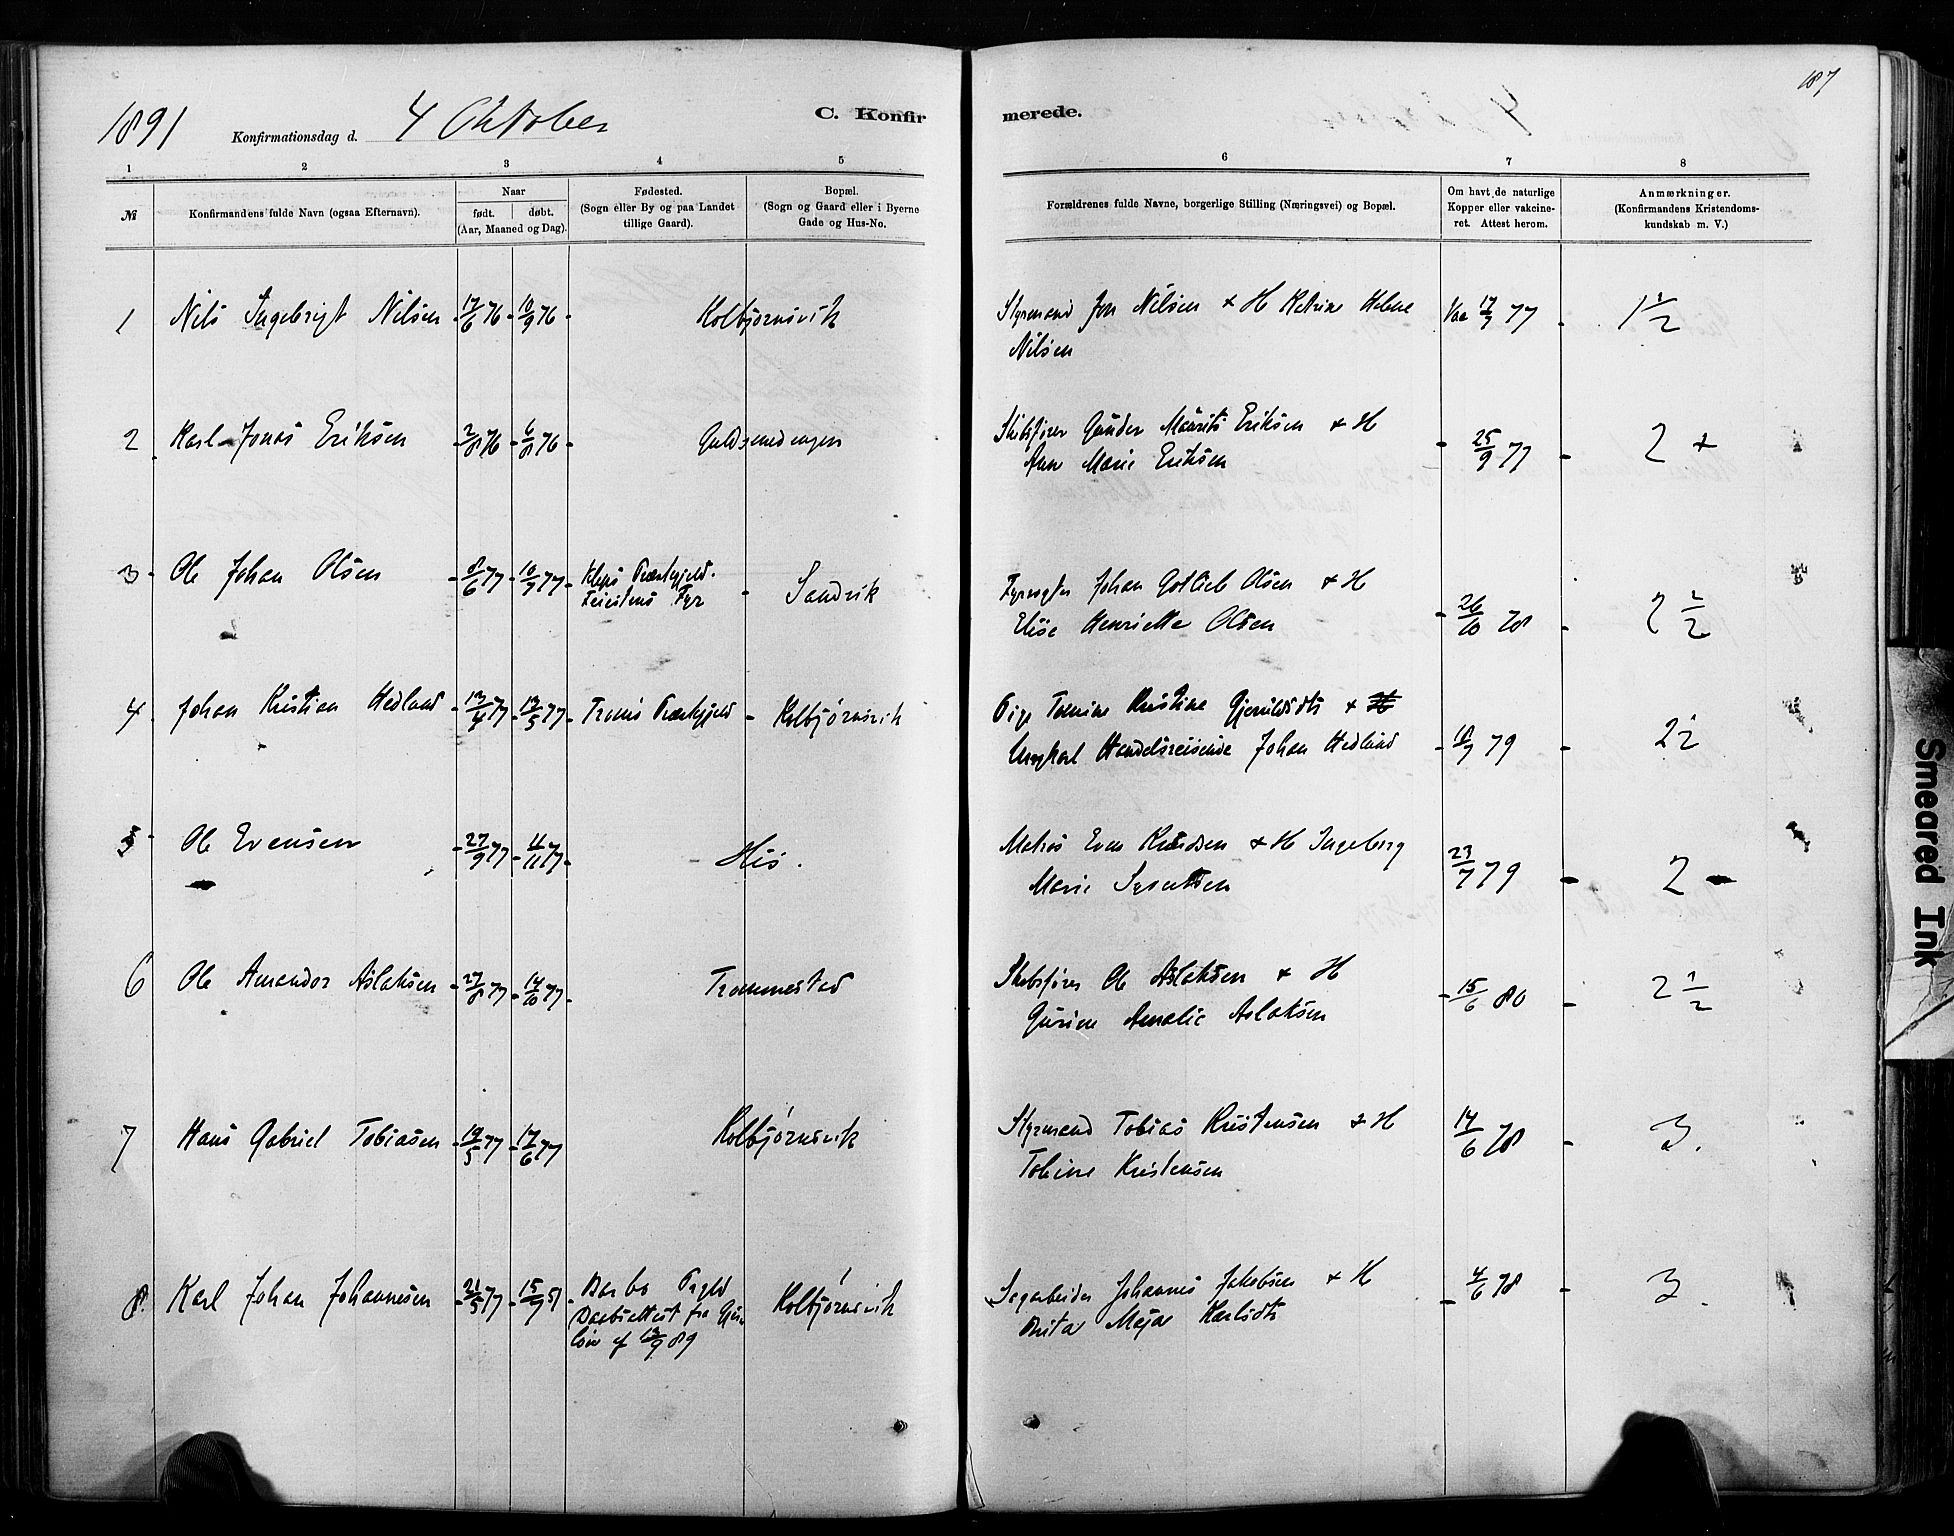 187
1891 Konfirmationsdag d. 4 Oktober C. Konfirmerede.
1 2 3 4 5 6 7 8
№
Konfirmandens fulde Navn (ogsaa Efternavn).
Naar
født. døbt.
(Aar, Maaned og Dag).
Fødested.
(Sogn eller By og paa Landet
tillige Gaard).
Bopæl.
(Sogn og Gaard eller i Byerne
Gade og Hus-No.
Forældrenes fulde Navne, borgerlige Stilling (Næringsvei) og Bopæl.
Om havt de naturlige
Kopper eller vakcine-
ret. Attest herom.
Anmærkninger.
(Konfirmandens Kristendoms-
kundskab m. V.)
1 Nils Ingebrigt Nilsen 17/6 76 10/9 76 Kolbjørnsvik Styrmand Jon Nilsen & H Katrine Helene Vac 17/7 77 1 1/2
Nilsen
2 Karl Jonas Eriksen 2/8 76 6/8 76 Guldsmedengen Skibsfører Gunder Maurits Eriksen & H 25/9 77 2 +
Ane Marie Eriksen
3 Ole Johan Olsen 8/6 77 10/7 77 Kleps Præstegjeld. Sandvik Fyrvogter Johan Gotlieb Olsen & H 26/10 78 2 1/2
Feiestens Fyr
Elise Henriette Olsen
4 Johan Kristian Hedlund 13/4 77 13/5 77 Tromø Præstegjeld Kolbjørnsvik Pige Tomine Kristine Gjeruldsdt & H
Ungkarl Handelsreisende Johan Hedlund 18/7 79 2 1/2
5 Ole Evensen 27/9 77 4/11 77 His. Matros Even Knudsen & H Ingeborg 23/7 79 2 -
Marie Syvertsen
6 Ole Amandor Aslaksen 27/8 77 14/10 77 Trommestad Skibsfører Ole Aslaksen & H 15/6 80 2 1/2
Gurine Amalie Aslaksen
7 Hans Gabriel Tobiasen 19/5 77 17/6 77 Kolbjørnsvik Styrmand Tobias Kristensen & H 14/6 78 3.
Tobine Kristensen
8. Karl Johan Johannesen 21/5 77 Barbo Pgjld Kolbjørnsvik Sagarbeider Johannes Jakobsen & H 4/6 78 3.
Daabsattest fra
af 12/9 89
Maja Karlsdt
Smeared Ink